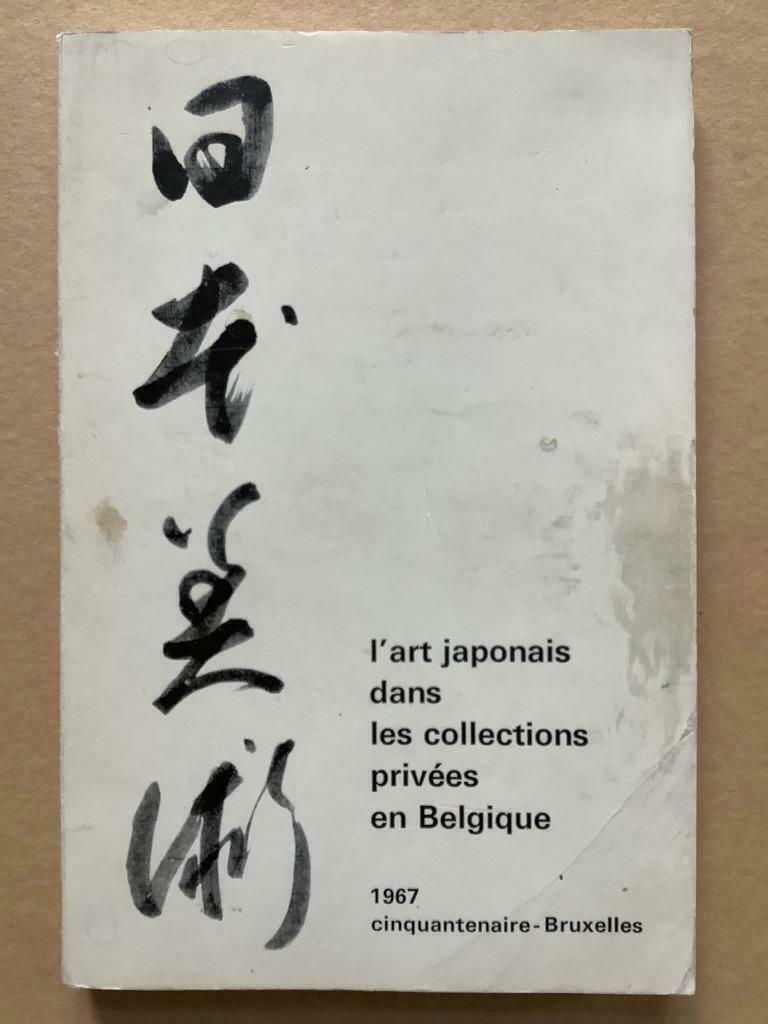 日本美術
l'art japonais
dans
les collections
privées
en Belgique
1967
cinquantenaire-Bruxelles